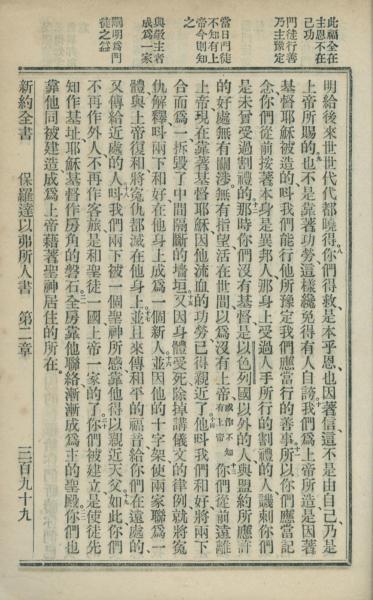 此福全在
主恩不在
己功
門徒行善
乃主豫定
當日門徒
不知有上
帝今則知
成為一家
明給後來世世代代都曉得你們得救是本乎恩也因著信這不是由自己乃是
上帝所賜的也不是靠著功勞這樣纔免得有人自誇我們為上帝所造是因著
基督耶穌被造的呌我們能行他所豫定我們應當行的善事所以你們應當記
念你們從前按著本身是異邦人那身上受過人手所行的割禮的人譏刺你們
是未曾受過割禮的那時你們沒有基督是以色列國以外的人與盟約所應許
的好處無有關涉無有指望活在世間以為沒有上帝或作不知有上帝你們從前遠離
上帝現在靠著基督耶穌因他流血的功勞已得親近了他呌我們和好將兩下
合而為一拆毀了中間隔斷的墻垣又因身體受死除掉講儀文的律例就將冤
仇解釋呌兩下和好在他身上成為一個新人並因他的十字架使兩家聯為一
體與上帝復和將冤仇都滅在他身上並且來傳和平的福音給你們在遠處的
又傳給近處的人呌我們兩下被一個聖神所感靠他得以親近天父如此你們
不再作外人不再作客旅是和聖徒一國上帝一家的了你們被建立是使徒先
知作基址耶穌基督作房角的磐石全房靠他聯絡漸漸成為主的聖殿你們也
靠他同被建造成為上帝藉著聖神居住的所在。
新約全書 保羅達以弗所人書 第二章 三百九十九